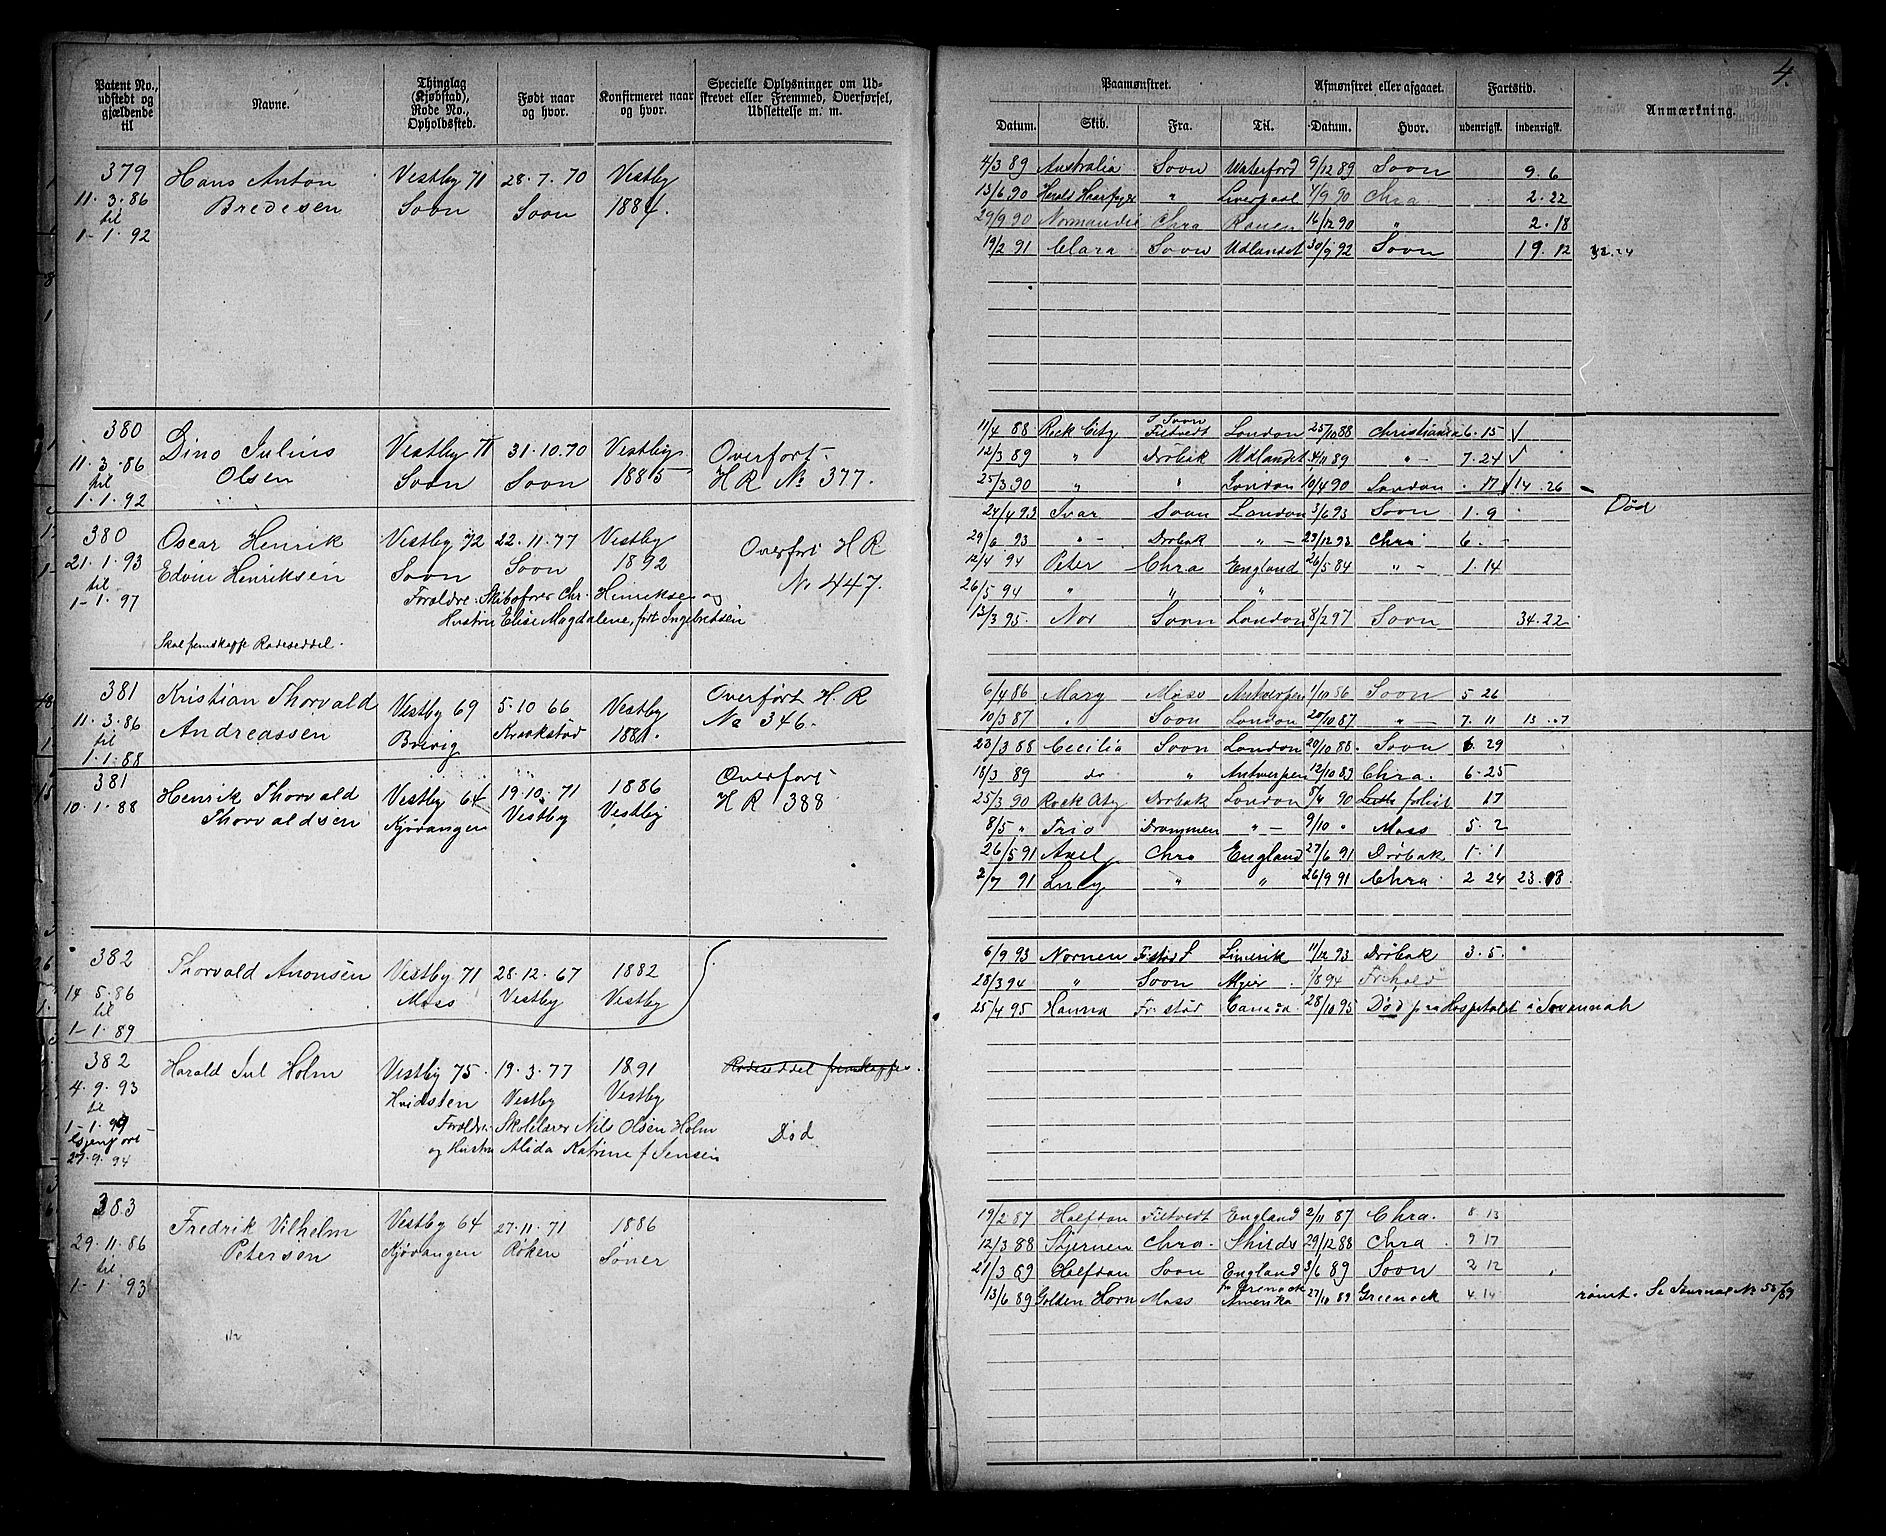 Patent No., udstedt og gjældende til
Navne.
Thinglag (Kjøbstad), Rode No., Opholdssted.
Født naar og hvor.
Konfirmeret naar og hvor.
Specielle Oplysninger om Udskrevet eller Fremmed, Overførsel, Udslettelse m. m.
379
11.3.86
til
1-1.92
Hans Anton
Bredesen
Vestby 71
Soon
28.7.70
Soon
Vestby
1884.
380
11.3.86
til
1.1.92
Dino Julius
Olsen
Vestby 71
Soon
31.10.70
Soon
Vestby
1885
Overført
H R No 377.
380
21.1.93
til
1-1.97
Oscar Henrik
Edvin Henriksen
Vestby 72
Soon
22.11.77
Soon
Vestby
1892
Overført H R
No 447.
Forældre: Skibsfører Chr. Henriksen og
Hustru Elise Magdalene, født Ingebretsen
Skal fremskaffe Rodeseddel.
381
11.3.86
til
1.1.88
Kristian Thorvald
Andreassen
Vestby 69
Brevig
5.10 66
Kraakstad
Vestby
1881.
Overført H. R
No 346.
381
10.1.88
Henrik Thorvald
Thorvaldsen
Vestby 64
Kjøvangen
19.10.71
Vestby
1886
Vestby
Overført
H R 388
382
14 5.86
til
1-1.89
Thorvald Anonsen
Vestby 71
Moss
28.12.67
Vestby
1882
Vestby
382
4.9.93
til
1-1.99
27.9.94
Harald Jul Holm
Vestby 75
Hvidsten
19.3.77
Vestby
1891
Vestby
Rodeseddel fremskaffes.
Forældre: Skolelærer Nils Olsen Holm
og Hustru Alida Katrine f Jensen
Død
383
29.11.86
til
1-1.93
Fredrik Vilhelm
Petersen
Vestby 64
Kjøvangen
27.11.71
Røken
1886
Soner
4
Paamønstret.
Afmønstret eller afgaaet.
Fartstid.
Anmærkning.
Datum. Skib. Fra. Til. Datum. Hvor. udenrigsk. indenrigsk.
4/3 89 Australia Soon Waterford 9/12 89 Soon 9.6
13/6 90 Harald Haarfager " Liverpool 4/9 90 Chra 2.22
29/9 90 Normandie Chra Rouen 16/12 90 " 2.18
19/2 91 Clara Soon Udlandet 30/9 92 Soon 19.12
11/4 88 Rock City Soon Filtvedt London 25/10 88 Christiania 6.15 √
12/3 89 " Drøbak Udlandet 4/11 89 " - 7.24 √
25/3 90 " " London 10/4 90 London . 17 14.26
24/4 93 Ivar Soon London 3/6 93 Soon 1.9 Død
29/6 93 " - Drøbak " - 29/12 93 Chra 6. -
12/4 94 Peter Chra England 26/5 84 " - 1.14
26/5 94 " " "
13/3 95. Nor Soon London 8/2 97 Soon 34.22
6/4 86 Mary Moss Antwerpen 1/10 86 Soon 5 26
10/3 87 " Soon London 20/10 87 " - 7.11 13.07
23/3 88 Cecilia Soon London 20/10 88. Soon 6 29
18/3 89 do " Antwerpen 12/10 89 Chra. 6.25
25/3 90 Rock City Drøbak London 90 Leith forlist 17
8/5 " Trio Drammen " - 9/10 " Moss 5.2
26/5 91 Axel Chra England 27/6 91 Drøbak 1.1
2/7 91 Lucy " " 26/9 91 Chra 2 24 23.08
6/9 93 Nornen Limerik 11/12 93 Drøbak 3.5.
28/3 94 " Soon 1/8 94 Fr.hald
25/4 95 Hanna Fr.stad Canada 28/10 95 Død paa Hospitalet i Savannah
19/2 87 Halfdan Filtvedt England 2/11 87 Chra. 8 13
12/3 88 Stjernen Chra. Shilds 29/12 88 Chra 9 17
21/3 89 Halfdan Soon England 3/6 89 Soon 2 12
13/6 89 Golden Horn Moss Grenock Amerika 27/10 89 Greenock 4 14 rømt. Se Journal No 50/89